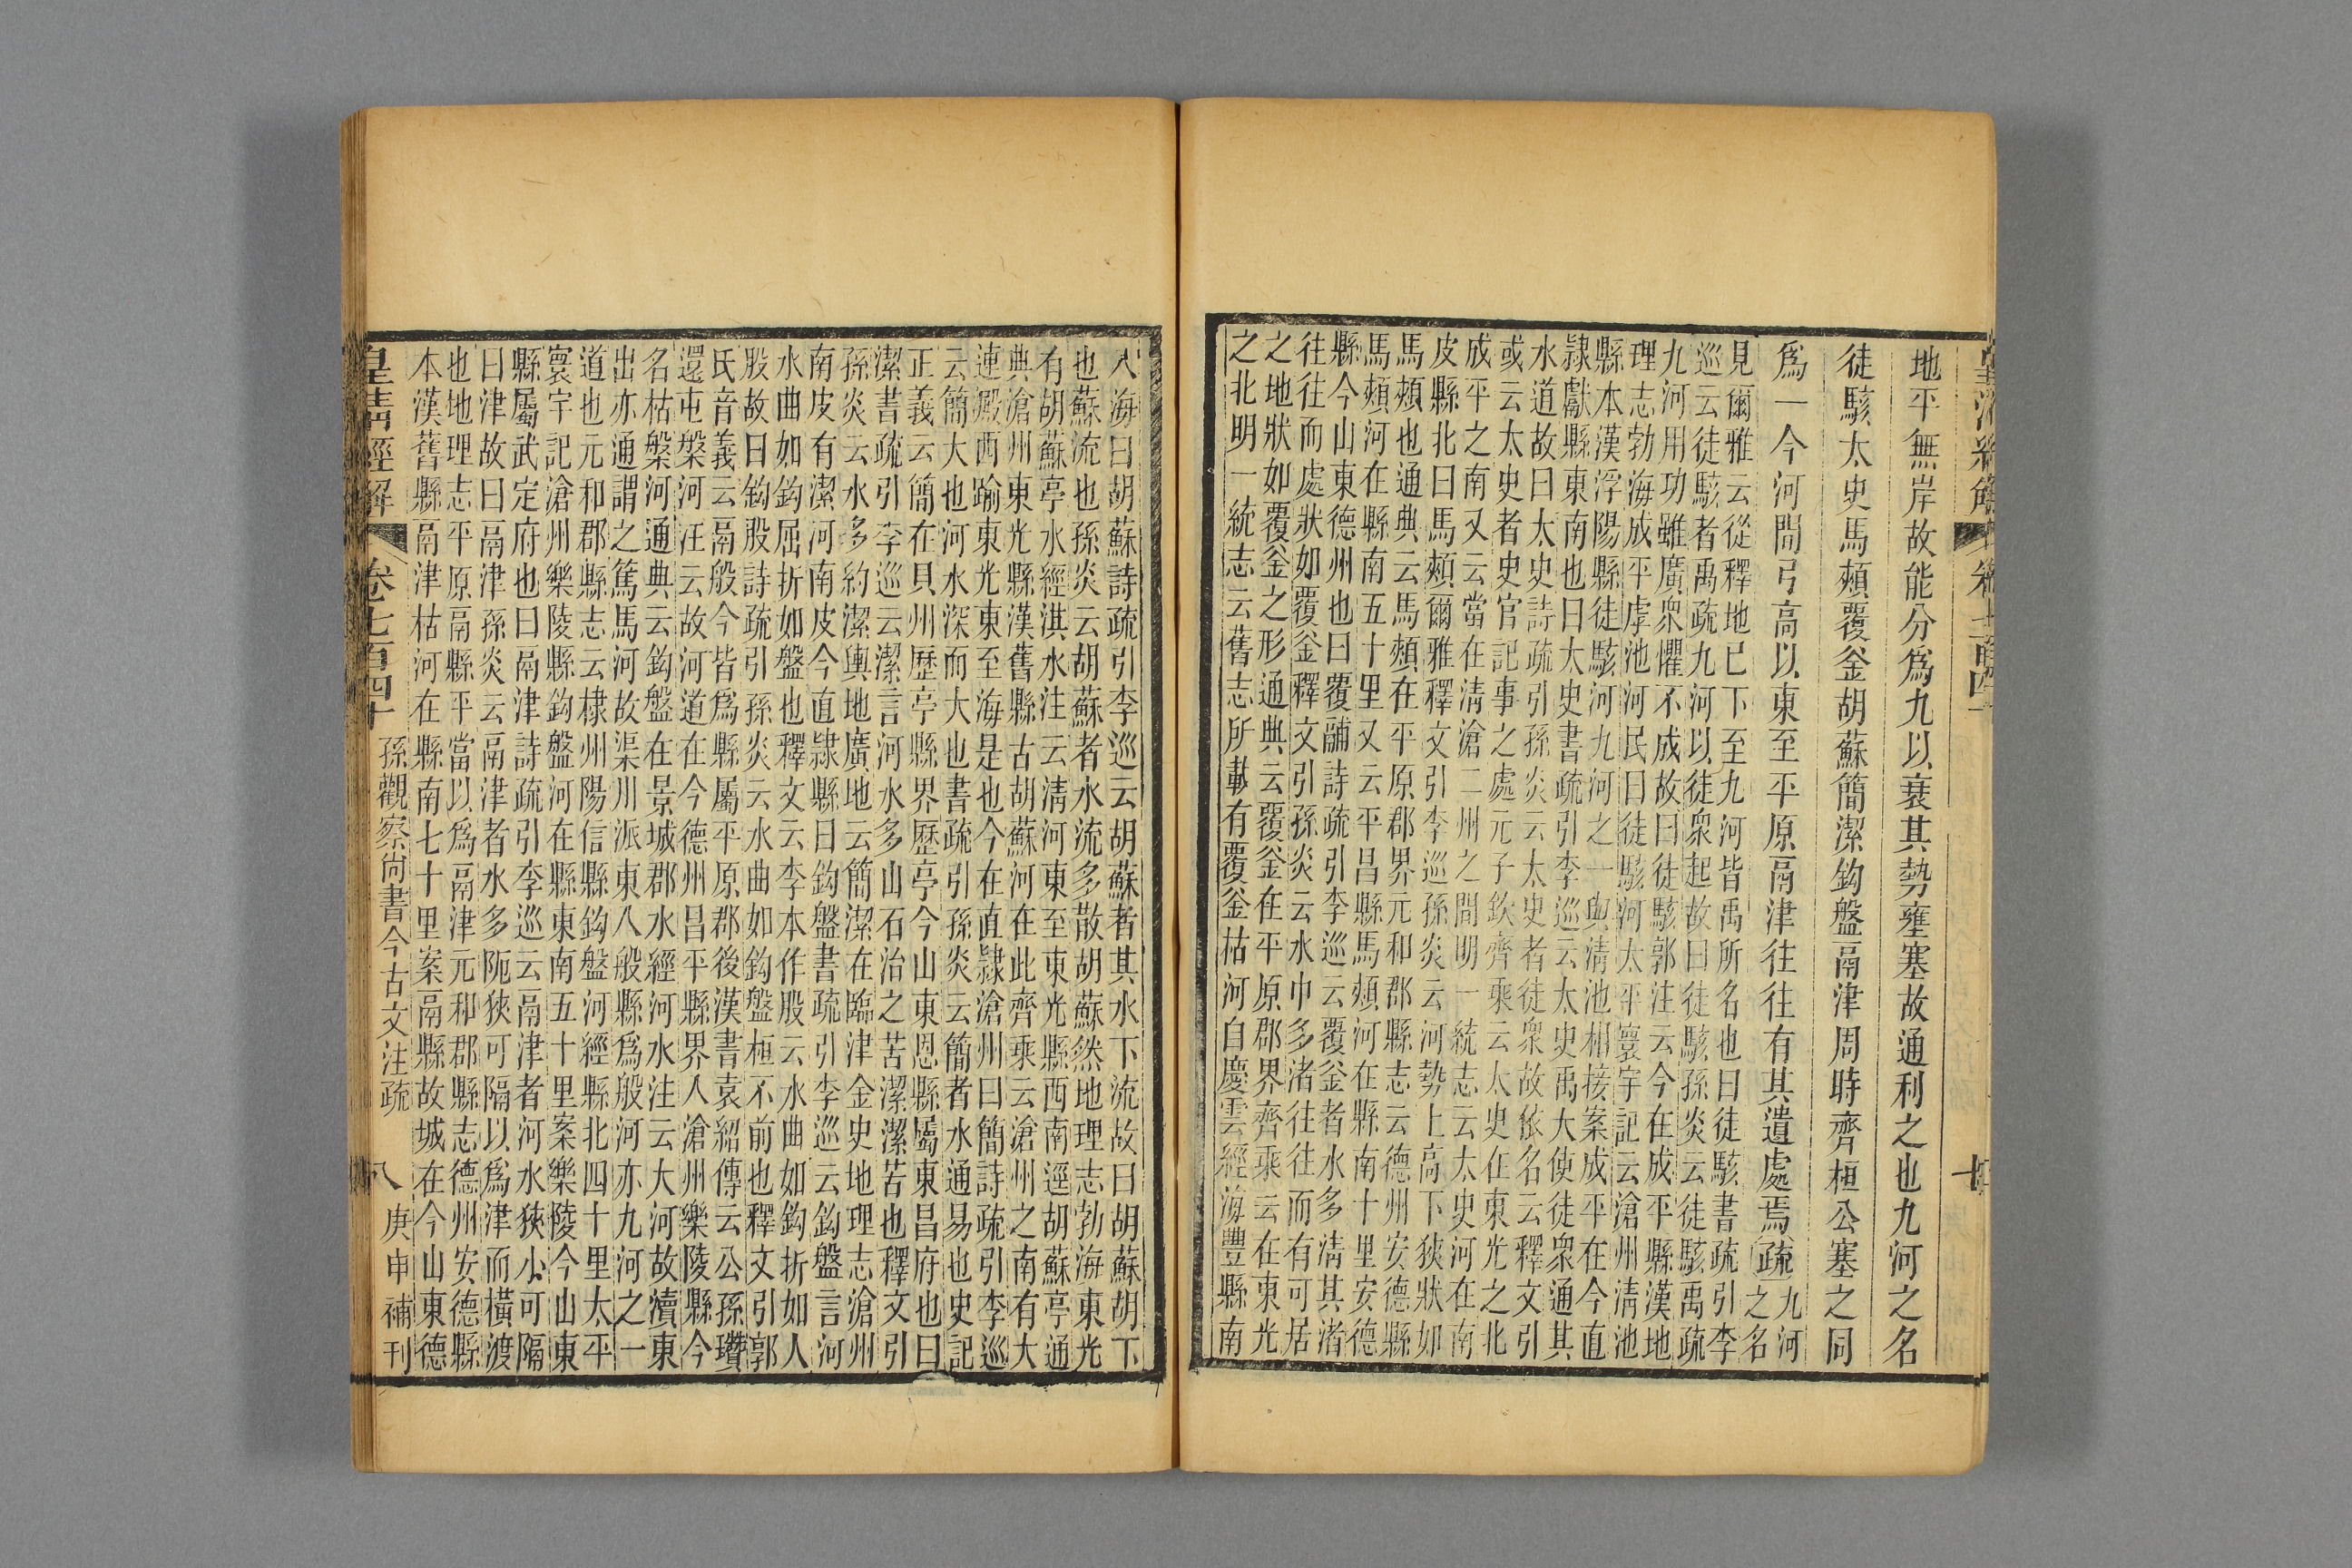 地平無岸故能分爲九以衰其勢壅塞故通利之也九河之名
徒駭太史馬頰覆釜胡蘇簡潔鈎盤鬲津周時齊桓公塞之同
爲一今河間弓高以東至平原鬲津往往有其遺處焉疏九河
之名
見爾雅云從釋地已下至九河皆禹所名也曰徒駭書疏引李
巡云徒駭者禹疏九河以徒衆起故曰徒駭孫炎云徒駭禹疏
九河用功雖廣衆懼不成故曰徒駭郭注云今在成平縣漢地
理志勃海成平虖池河民曰徒駭河太平寰宇記云滄州清池
縣本漢浮陽縣徒駭河九河之一與清池相接案成平在今直
隷獻縣東南也曰太史書疏引李巡云太史禹大使徒衆通其
水道故曰太史詩疏引孫炎云太史者徒衆故依名云釋文引
或云太史者史官記事之處元子欽齊乘云太史在東光之北
成平之南又云當在清滄二州之間明一統志云太史河在南
皮縣北曰馬頰爾雅釋文引李巡孫炎云河勢上高下狹狀如
馬頰也通典云馬頰在平原郡界元和郡縣志云德州安德縣
馬頰河在縣南五十里又云平昌縣馬頰河在縣南十里安德
縣今山東德州也曰覆鬴詩疏引李巡云覆釜者水多渚其渚
往往而處狀如覆釜釋文引孫炎云水中多渚往往而有可居
之地狀如覆釜之形通典云覆釜在平原郡界齊乘云在東光
之北明一統志云舊志所載有覆釜枯河自慶雲經海豐縣南
入海曰胡蘇詩疏引李巡云胡蘇者其水下流故曰胡蘇胡下
也蘇流也孫炎云胡蘇者水流多散胡蘇然地理志勃海東光
有胡蘇亭水經淇水注云清河東至東光縣西南逕胡蘇亭通
典滄州東光縣漢舊縣古胡蘇河在此齊乘云滄州之南有大
連澱西踰東光東至海是也今在直隷滄州曰簡詩疏引李巡
云簡大也河水深而大也書疏引孫炎云簡者水通易也史記
正義云簡在貝州歷亭縣界歷亭今山東恩縣屬東昌府也曰
潔書疏引李巡云潔言河水多山石治之苦潔潔苦也釋文引
孫炎云水多約潔輿地廣地云簡潔在臨津金史地理志滄州
南皮有潔河南皮今直隷縣曰鈎盤書疏引李巡云鈎盤言河
水曲如鈎屈折如盤也釋文云李本作股云水曲如鈎折如人
股故曰鈎股詩疏引孫炎云水曲如鈎盤桓不前也釋文引郭
氏音義云鬲般今皆爲縣屬平原郡後漢書袁紹傳云公孫瓚
還屯槃河汪云故河道在今德州昌平縣界人滄州樂陵縣今
名枯槃河通典云鈎盤在景城郡水經河水注云大河故瀆東
出亦通謂之篤馬河故渠川派東八般縣爲般河亦九河之一
道也元和郡縣志云棣州陽信縣鈎盤河經縣北四十里太平
寰宇記滄州樂陵縣鈎盤河在縣東南五十里案樂陵今山東
縣屬武定府也曰鬲津詩疏引李巡云鬲津者河水狹小可隔
曰津故曰鬲津孫炎云鬲津者水多阨狹可隔以爲津而橫渡
也地理志平原鬲縣平當以爲鬲津元和郡縣志德州安德縣
本漢舊縣鬲津枯河在縣南七十里案鬲縣故城在今山東德
皇清經解 卷七百四十 孫觀察尙書今古文注疏 八 庚申補刊